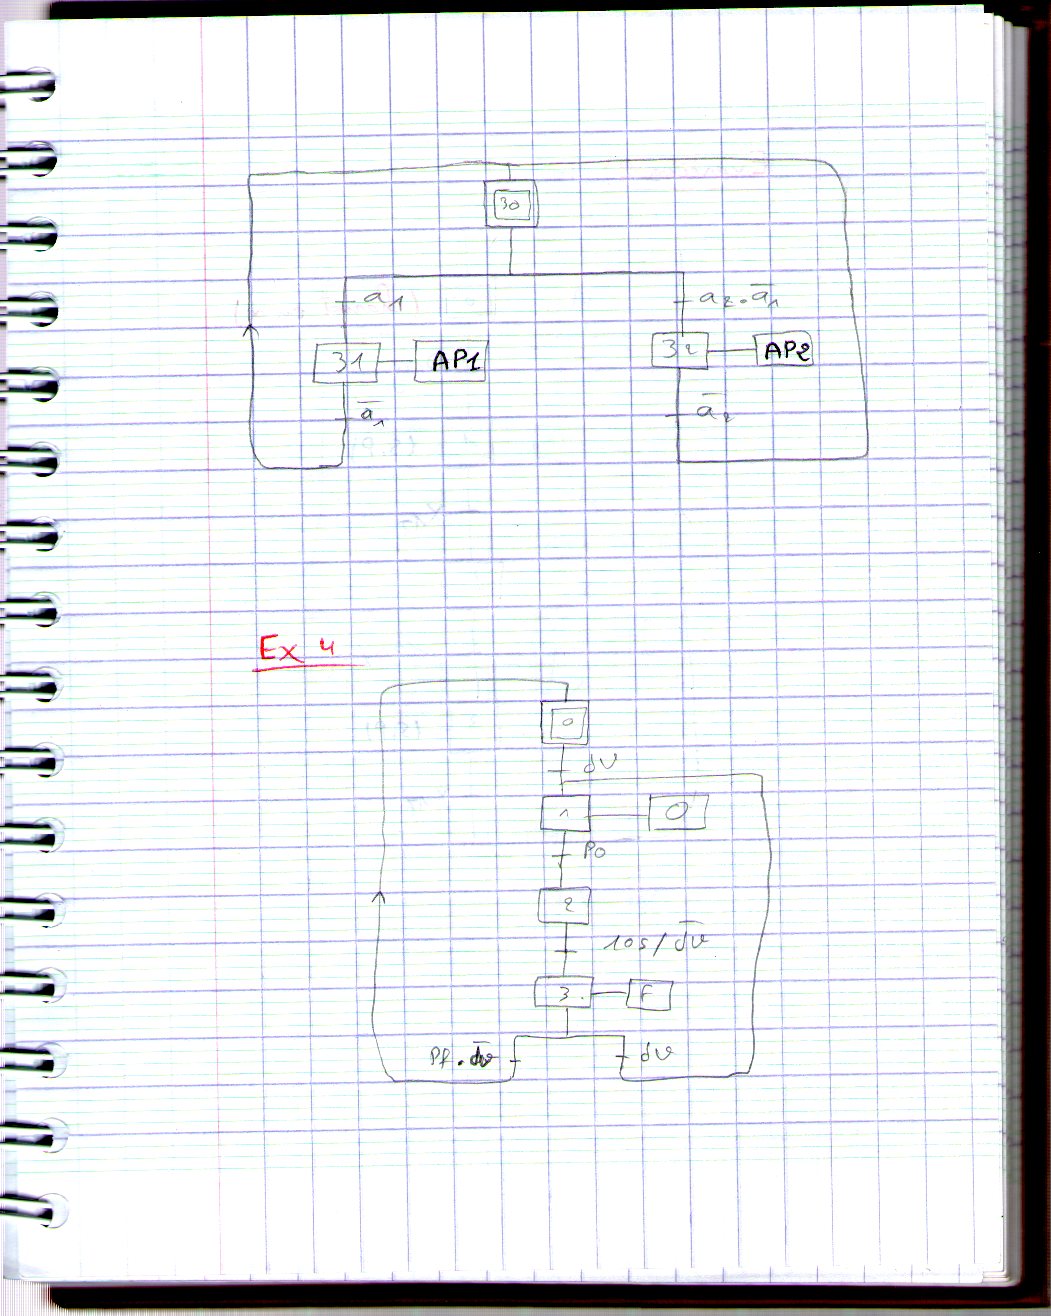 30
a1 a2.a̅1
31 AP1 32 AP2
a̅1 a̅2
Ex 4
0
dv
1 O
Po
2
10s/d̅v̅
3 F
Pf.d̅v̅ dv